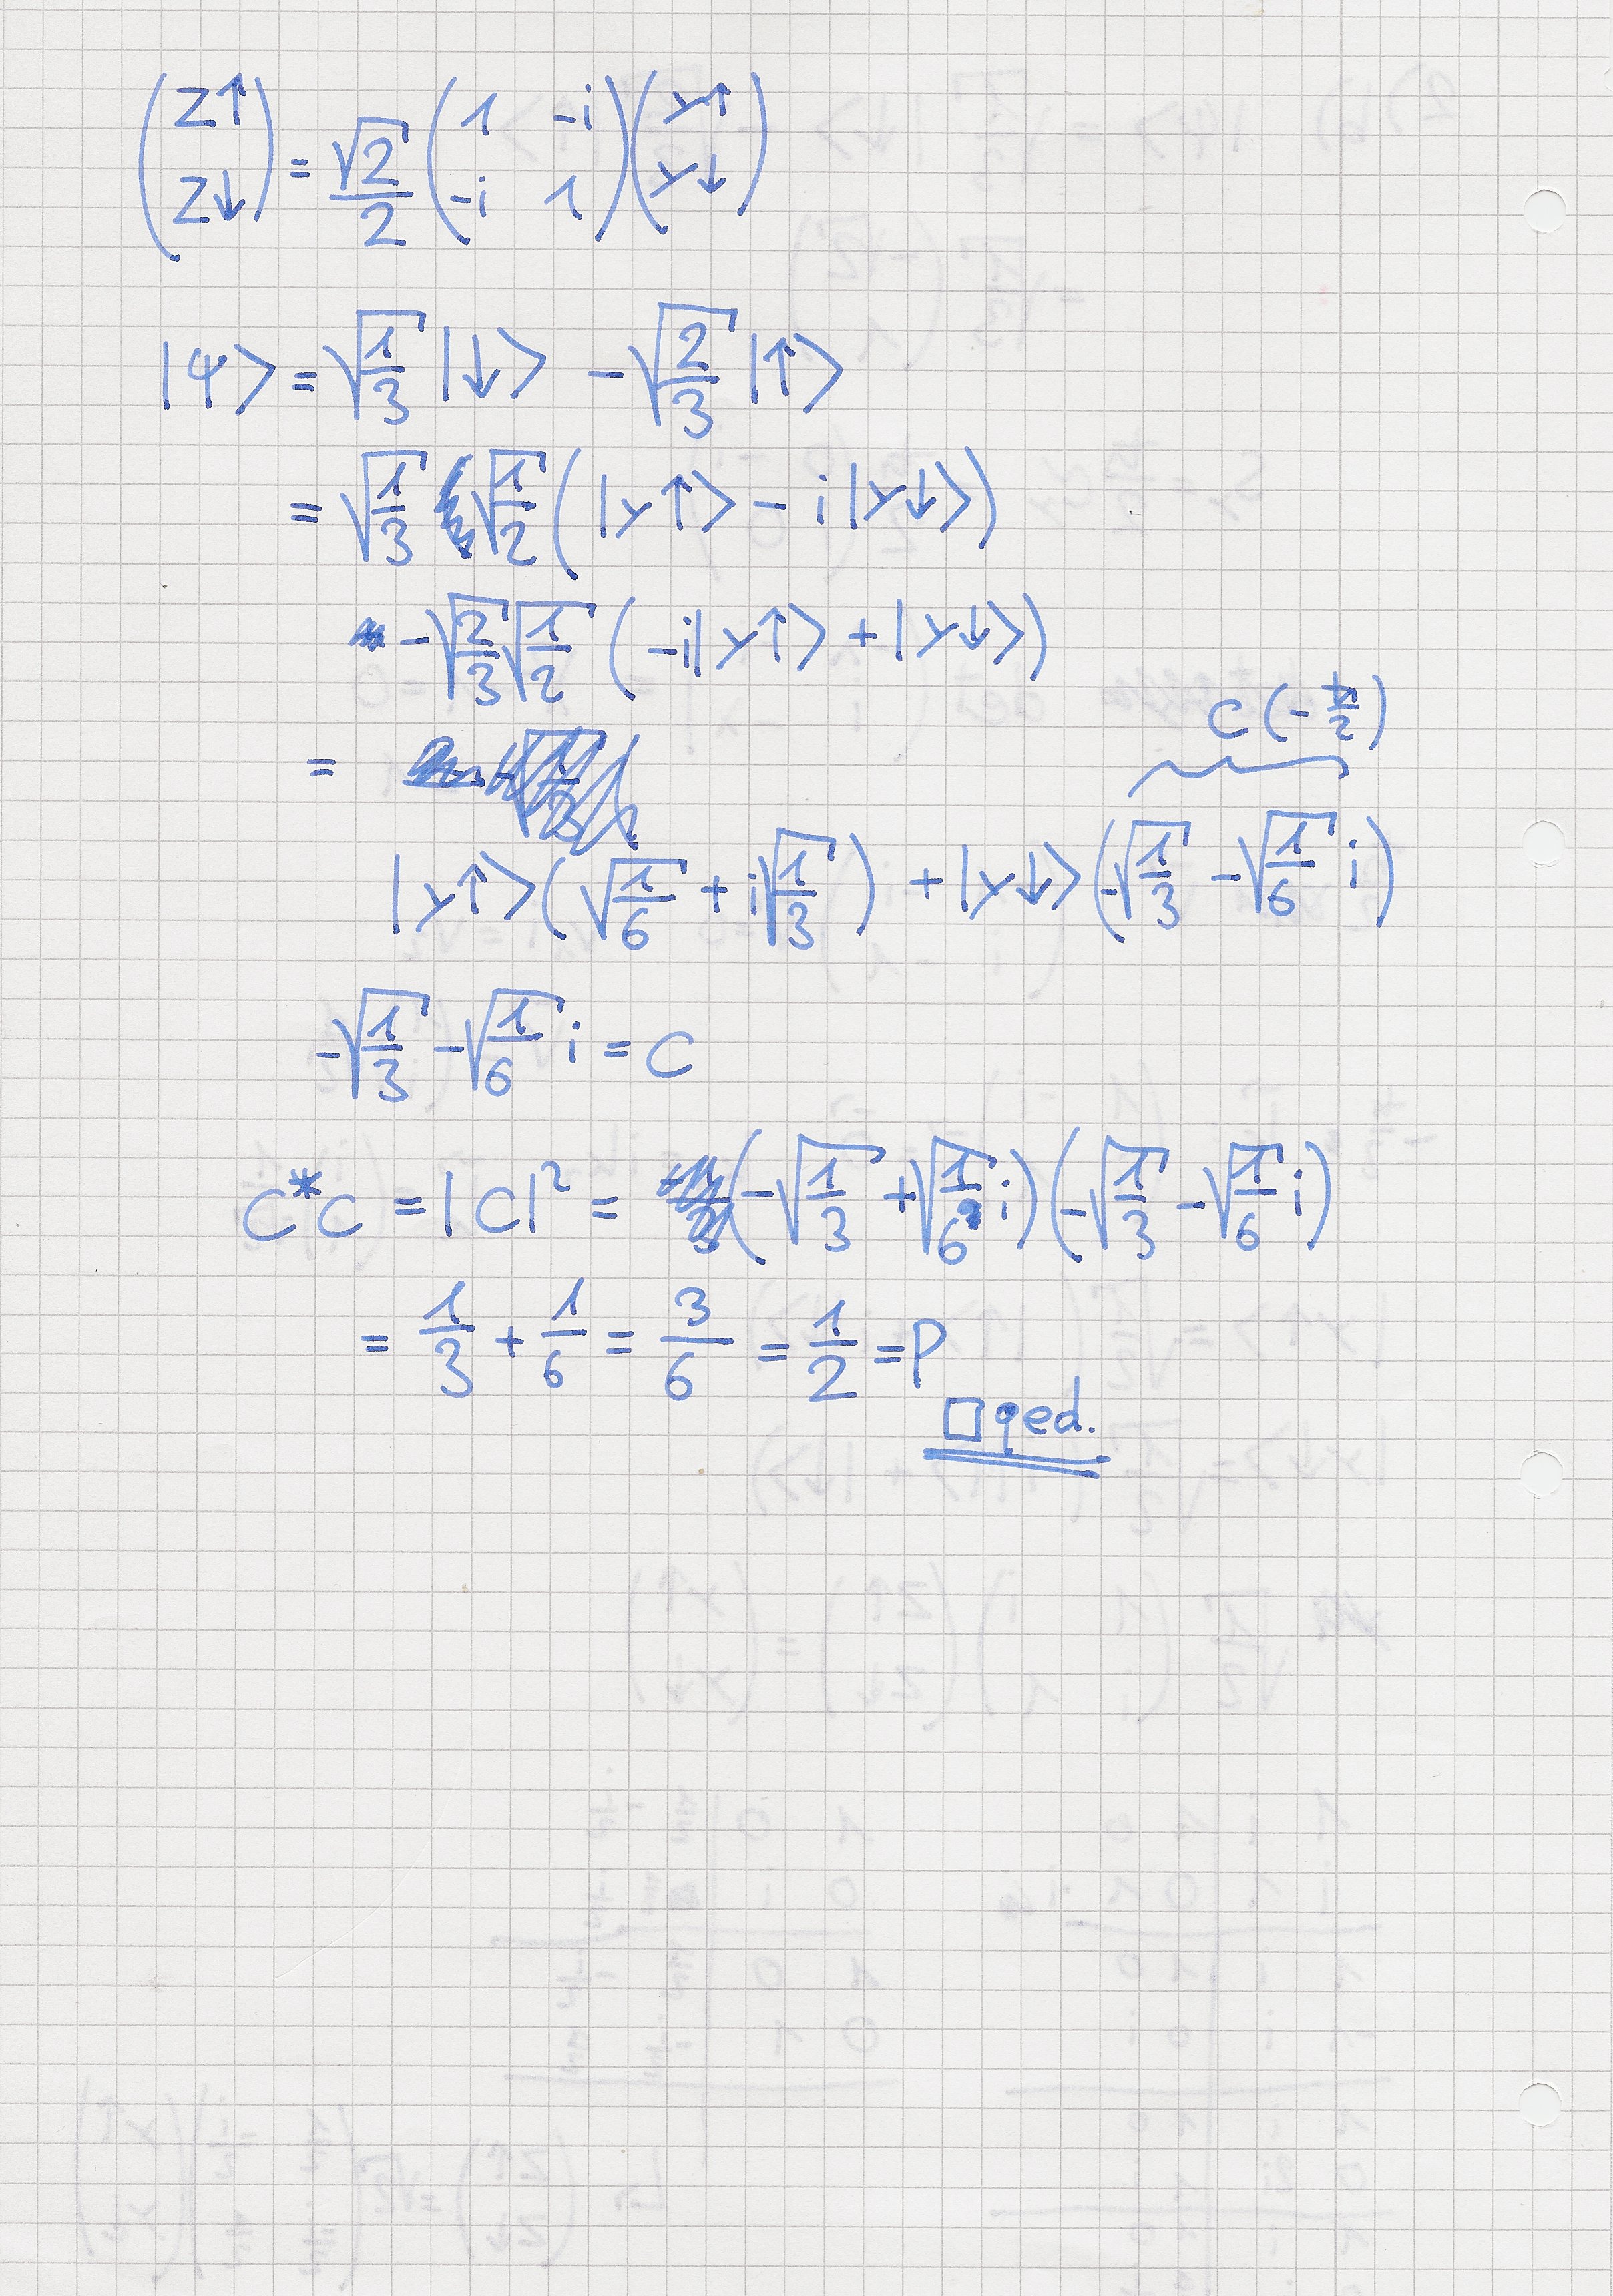 (z↑ z↓) = √2/2 (1 -i -i 1) (y↑ y↓)
|ψ> = √(1/3) |↓> - √(2/3) |↑>
= √(1/3) √(1/2) ( |y↑> - i |y↓>)
- √(2/3) √(1/2) (-i|y↑> + |y↓>)
c (-ħ/2)
=
|y↑> (√(1/6) + i√(1/3)) + |y↓> (-√(1/3) - √(1/6) i)
-√(1/3) - √(1/6) i = c
c*c = |c|² = (-√(1/3) + √(1/6) i) (-√(1/3) - √(1/6) i)
= 1/3 + 1/6 = 3/6 = 1/2 = P
□ qed.